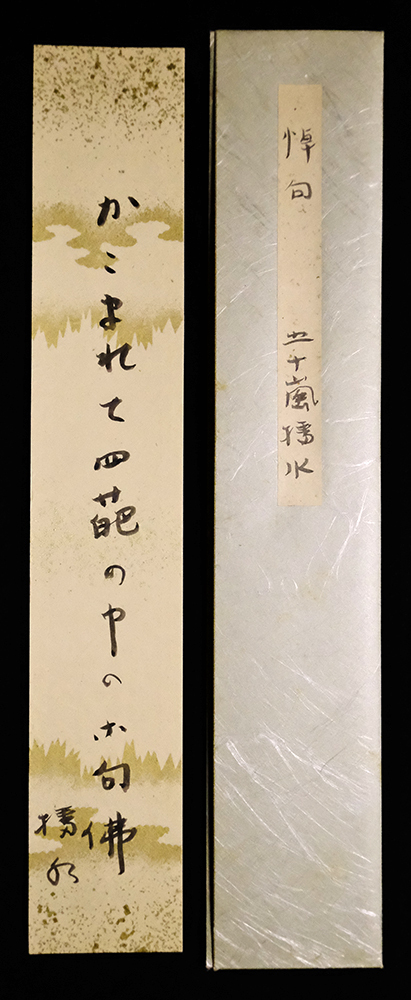 悼句 五十嵐播水
かこまれて四葩の中の小句佛
播水